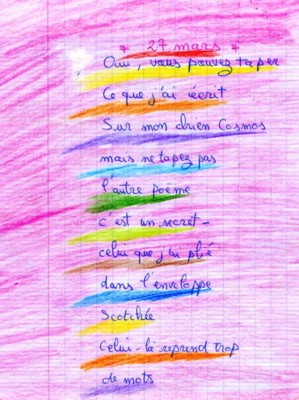 * 27 mars *
Oui, vous pouvez taper
Ce que j'ai écrit
Sur mon chien Cosmos
mais ne tapez pas
l'autre poème
c'est un secret-
celui que j'ai plié
dans l'enveloppe
Scotchée
Celui-là reprend trop
de mots